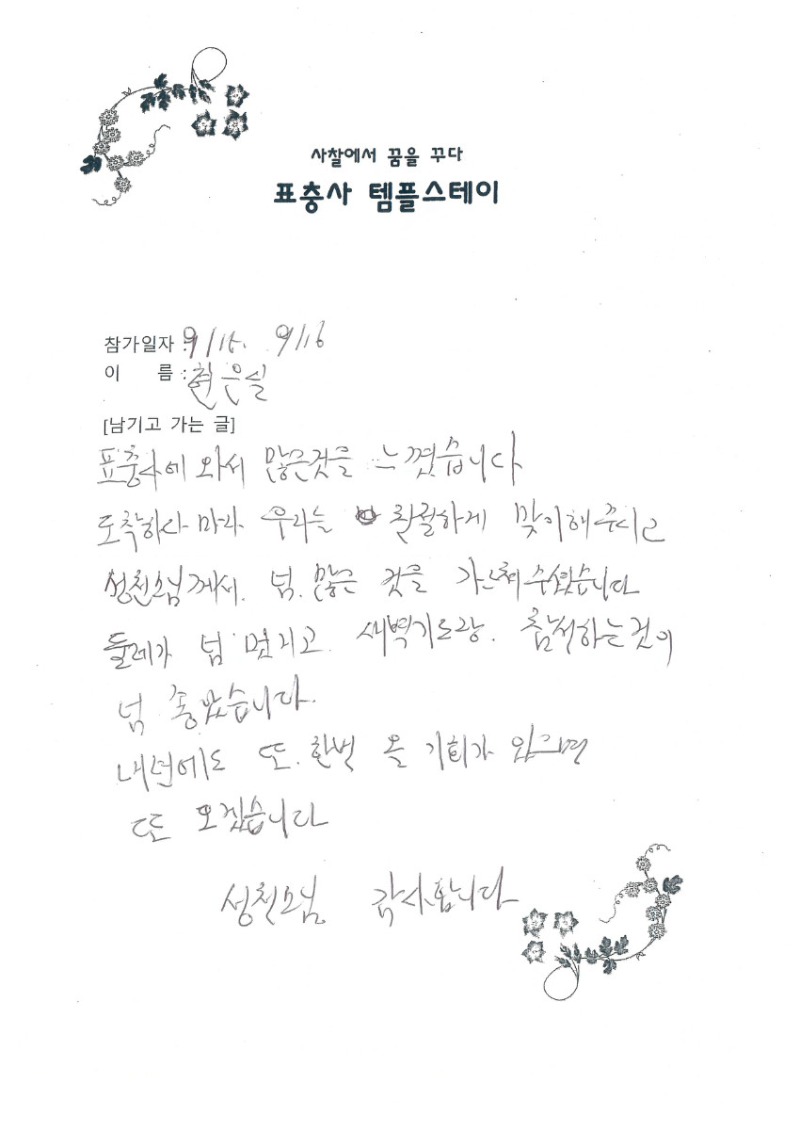 사찰에서 꿈을 꾸다
표충사 템플스테이
참가일자 : 9/15. 9/16
이 름 : 은실
[남기고 가는 글]
표충사에 와서 많은것을 느꼈습니다
도착하자 마자 우리는 친절하게 맞이해주시고
성천스님께서. 넘. 많은 것을 가르쳐 주셨습니다
둘레가 넘 멋지고. 새벽기도랑. 참석하는것이
넘 좋았습니다.
내년에도 또. 한번 올 기회가 있으면
또 오겠습니다
성천스님 감사합니다